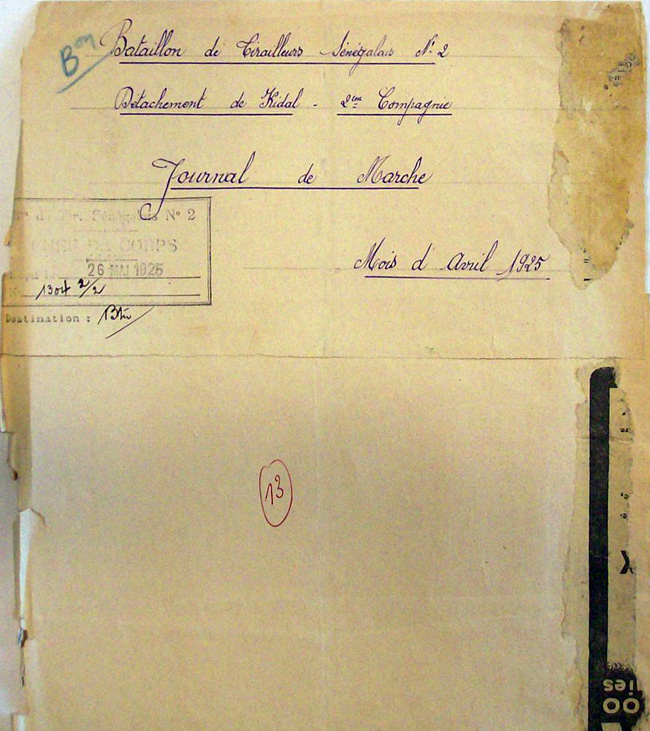 Bon
Bataillon de Tirailleurs Sénégalais N° 2
Détachement de Kidal - 2ème Compagnie
Journal de Marche
Mois d'Avril 1925
on de Tir. Sénégalais N° 2
CHEF DE CORPS
26 MAI 1925
N° 1304 2/2
Destination :
13